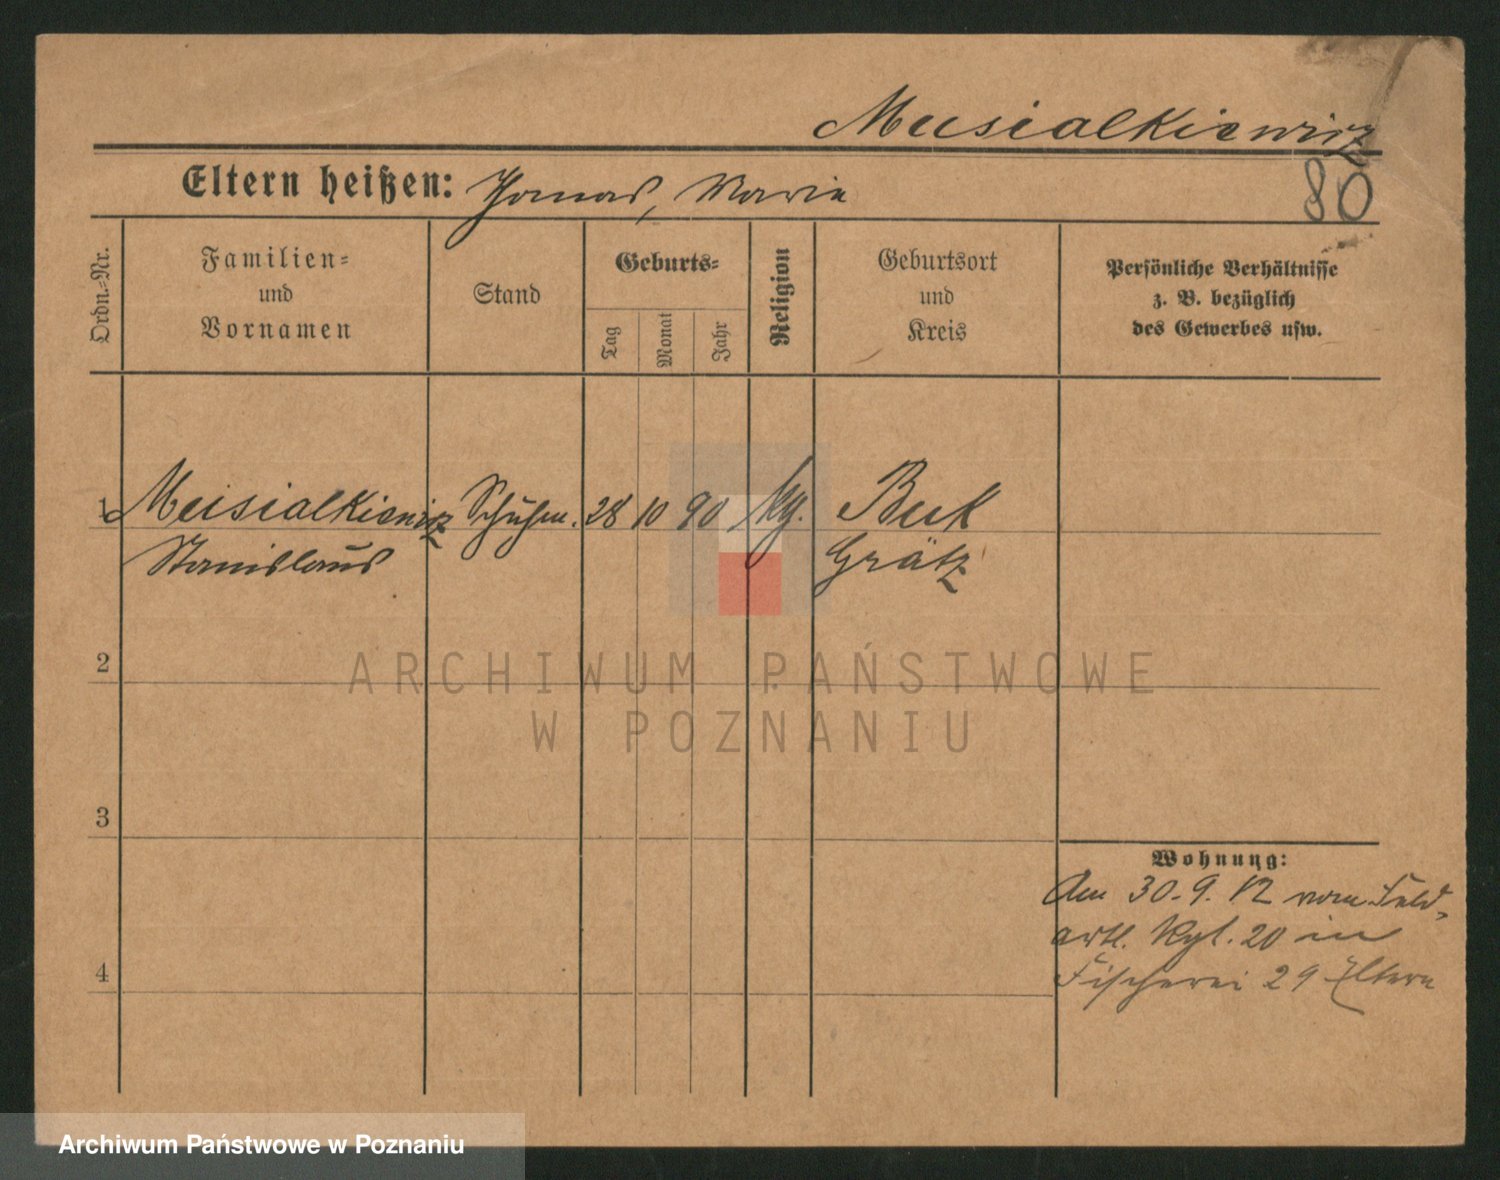 Musialkiewicz
Eltern heißen: Thomas, Marie
80
Ordn.-Nr.
Familien-
und
Vornamen
Stand
Geburts-
Tag
Monat
Jahr
Religion
Geburtsort
und
Kreis
Persönliche Verhältnisse
z. B. bezüglich
des Gewerbes usw.
1 Musialkiewicz 28 10 90 Buk
Stanislaus Grätz
2
ARCHIWUM PAŃSTWOWE
W POZNANIU
3
Wohnung:
Am 30.9.12 vom Feld-
artl. Rgt. 20 in
4 Fischerei 29 Eltern
Archiwum Państwowe w Poznaniu